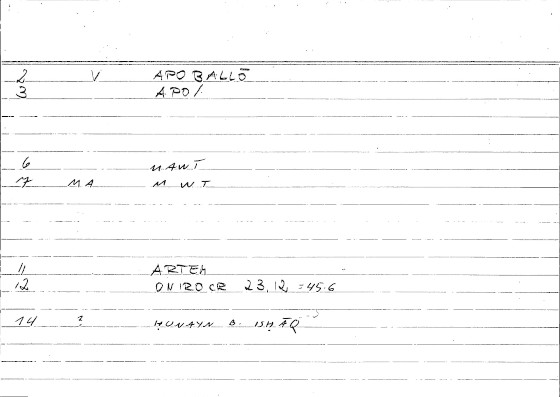 2 V APOBALLŌ
3 APO/.
6 MAWT
7 MA M W T
11 ARTEM
12 ONIROCR 23,12 = 45.6
14 ? ḤUNAYN B. ISḤĀQ